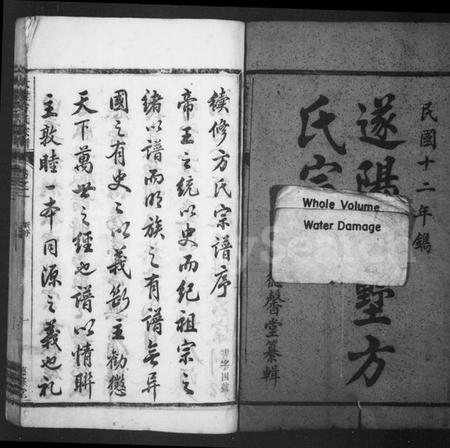 民國十二年鐫
遂陽 墅方
氏宗
馨堂纂輯
Whole Volume
Water Damage
續修方氏宗譜序
帝王之統以史而紀祖宗之
緒以譜而明族之有譜無異
國之有史之以義彰王勸懲
天下萬世之經也譜以情聯
主敦睦一本同源之義也禮